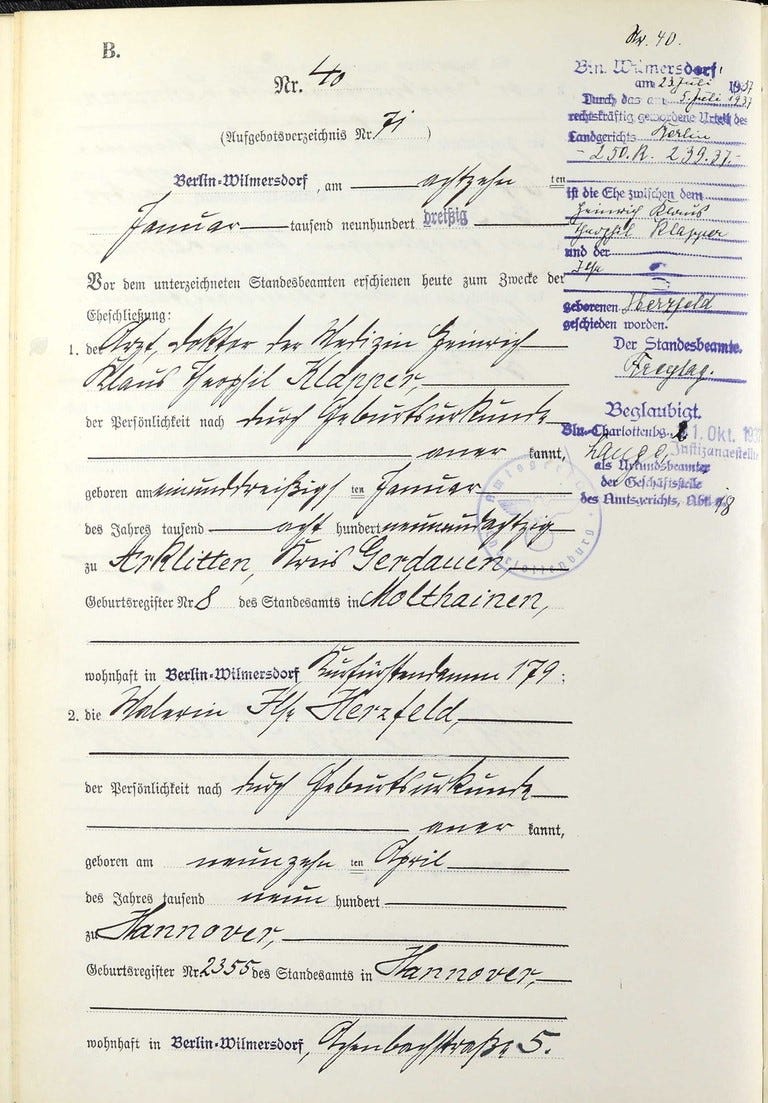 B.
Nr. 40
(Aufgebotsverzeichnis Nr. 71)
Berlin-Wilmersdorf, am achtzehn ten
Januar tausend neunhundert dreißig
Vor dem unterzeichneten Standesbeamten erschienen heute zum Zwecke der
Eheschließung:
1. der Arzt, Doktor der Medizin Heinrich
Klaus Theophil Klapper,
der Persönlichkeit nach durch Geburtsurkunde
aner kannt,
geboren am einunddreißigs ten Januar
des Jahres tausend acht hundert neunundachtzig
zu Arklitten, Kreis Gerdauen,
Geburtsregister Nr. 8 des Standesamts in Molthainen,
wohnhaft in Berlin-Wilmersdorf Kurfürstendamm 179;
2. die Malerin Ilse Herzfeld,
der Persönlichkeit nach durch Geburtsurkunde
aner kannt,
geboren am neunzehn ten April
des Jahres tausend neun hundert
zu Hannover,
Geburtsregister Nr. 2355 des Standesamts in Hannover,
wohnhaft in Berlin-Wilmersdorf, Achenbachstraße 5.
Nr. 40.
Bln. Wilmersdorf
am 23 Juli 1937
Durch das am 5. Juli 1937
rechtskräftig gewordene Urteil des
Landgerichts Berlin
- 250. R. 239.37. -
ist die Ehe zwischen dem
Heinrich Klaus
Theophil Klapper
und der
Ilse
geborenen Herzfeld
geschieden worden.
Der Standesbeamte.
Freytag.
Beglaubigt.
Bln-Charlottenbg. 1. Okt. 193
Justizangestellte
als Urkundsbeamter
der Geschäftsstelle
des Amtsgerichts, Abt. 18